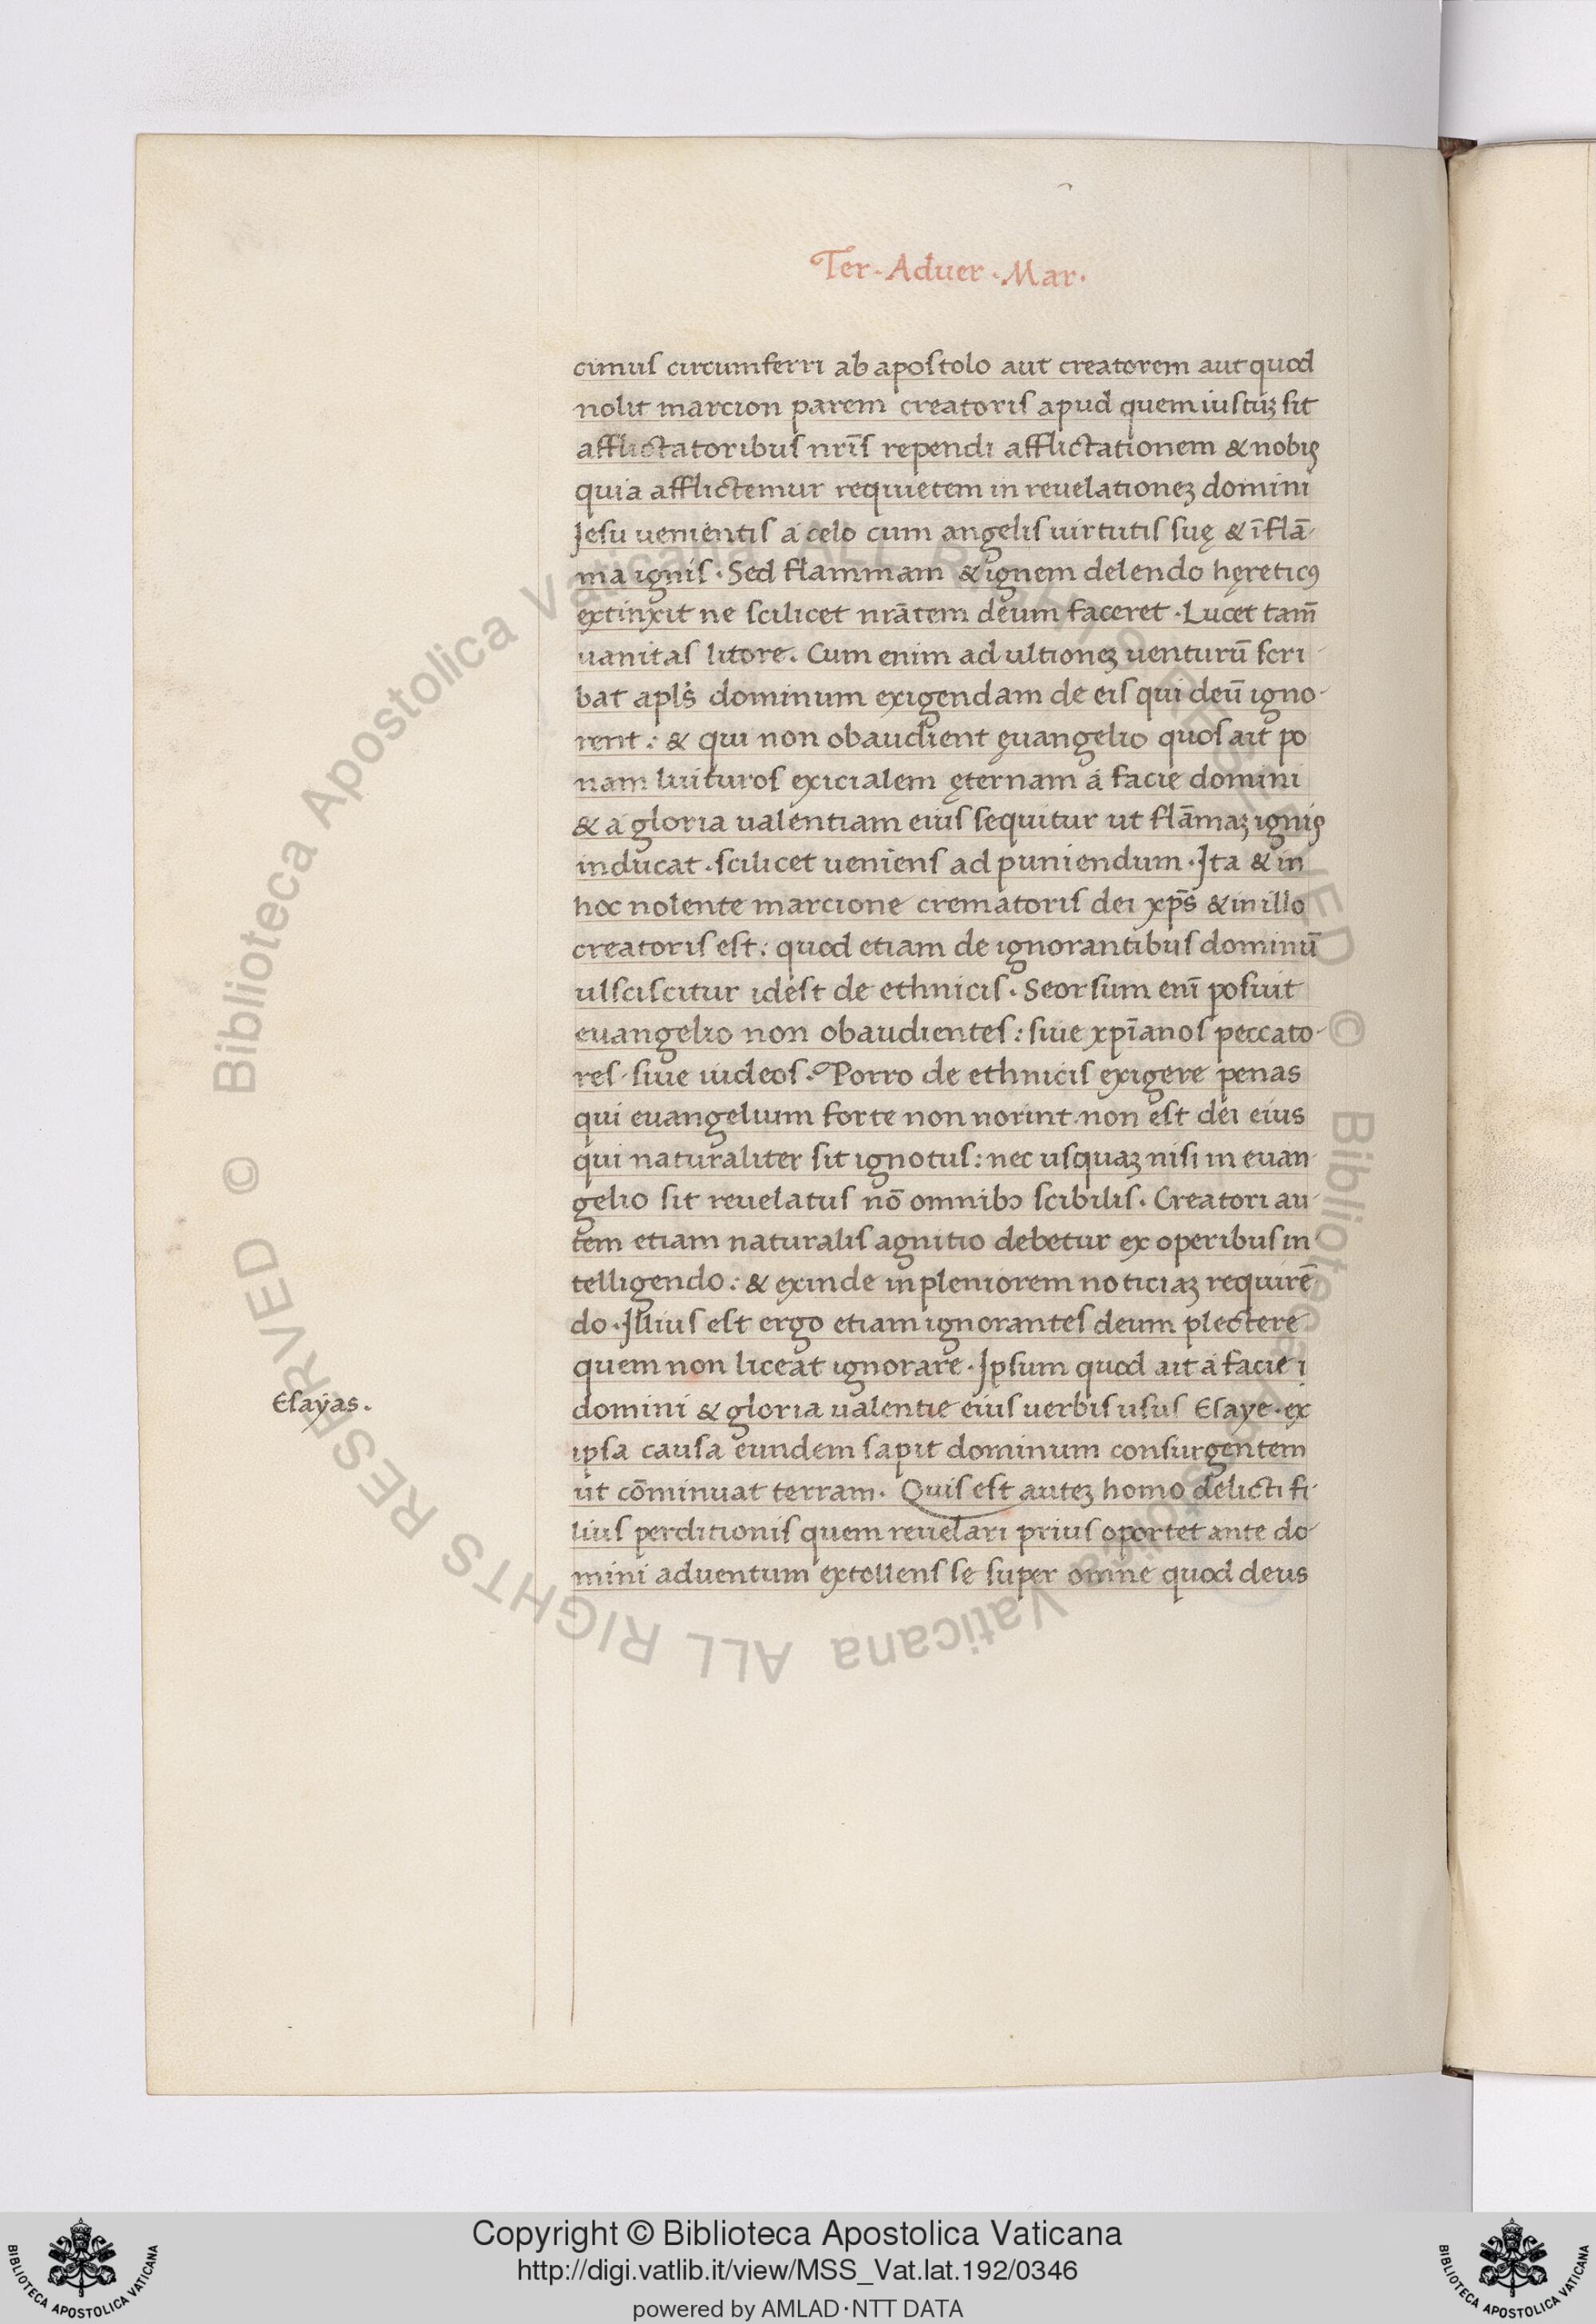 Ter · Aduer · Mar ·
cimus circumferri ab apostolo aut creatorem aut quod
nolit marcion parem creatoris apud quem iustuꝫ sit
afflictatoribus nr̄is rependi afflictationem & nobis
quia afflictemur requietem in reuelationeꝫ domini
Jesu uenientis a celo cum angelis uirtutis suę & ī flā-
ma ignis · Sed flammam & ignem delendo hęreticꝰ
extinxit ne scilicet nrātem deum faceret · Lucet tam̄
uanitas litore. Cum enim ad ultioneꝫ uenturū scri
bat apl̓s dominum exigendam de eis qui deū igno-
rent: & qui non obaudient ęuangelio quos ait po
nam luituros exicialem ęternam á facie domini
& a gloria ualentiam eius sequitur ut flāmaꝫ ignis
inducat · scilicet ueniens ad puniendum · Ita & in
hoc nolente marcione crematoris dei xp̄s & in illo
creatoris est: quod etiam de ignorantibus dominū
ulsciscitur idest de ethnicis · Seorsum enī posuit
euangelio non obaudientes: siue xp̄ianos peccato-
res · siue iudeos · Porro de ethnicis exigere penas
qui euangelium forte non norint · non est dei eius
qui naturaliter sit ignotus: nec usquaꝫ nisi in euan
gelio sit reuelatus nō omnibꝰ scibilis · Creatori au-
tem etiam naturalis agnitio debetur ex operibus in
telligendo: & exinde in pleniorem noticiaꝫ requirē
do · Illius est ergo etiam ignorantes deum plectere
quem non liceat ignorare · Ipsum quod ait á facie i
domini & gloria ualentie eius uerbis usus Esaye · ex
Esayas.
ipsa causa eundem sapit dominum consurgentem
ut cōminuat terram. Quis est auteꝫ homo delicti fi-
lius perditionis quem reuelari prius oportet ante do-
mini aduentum extollens se super omne quod deus
© Biblioteca Apostolica Vaticana ALL RIGHTS RESERVED © Biblioteca Apostolica Vaticana ALL RIGHTS RESERVED
Copyright © Biblioteca Apostolica Vaticana
http://digi.vatlib.it/view/MSS_Vat.lat.192/0346
powered by AMLAD·NTT DATA
BIBLIOTECA APOSTOLICA VATICANA
BIBLIOTECA APOSTOLICA VATICANA